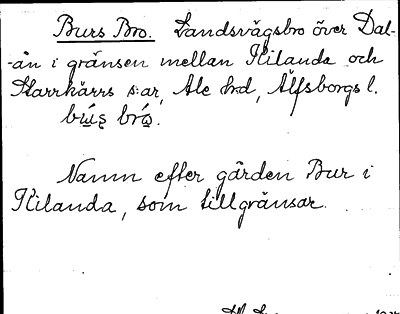 Burs Bro. Landsvägsbro över Dal-
-ån i gränsen mellan Kilanda och
Starrkärrs s:ar, Ale hd, Älfsborgs l.
Namn efter gården Bur i
Kilanda, som tillgränsar.